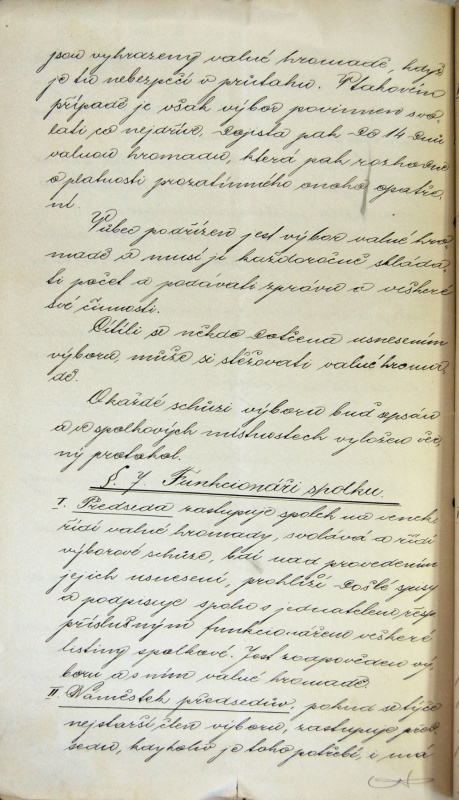 jsou vyhrazeny valné hromadě, když
je tu nebezpečí v průtahu. V takovém
případě je však výbor povinnen svo-
lati co nejdříve, zajisté pak do 14 dnů
valnou hromadu, která pak rozhodne
o platnosti prozatimného onoho opatře-
ní.
Vůbec podřízen jest výbor valné hro-
madě a musí jí každoročně skláda-
ti počet a podávati zprávu o veškeré
své činnosti.
Cítil-li se někdo dotčena usnesením
výboru, může si stěžovati valné hroma-
dě.
O každé schůzi výboru buď sepsán
a ve spolkových místnostech vyložen věc-
ný protokol.
§. 7. Funkcionáři spolku.
I. Předseda zastupuje spolek na venek
řídí valné hromady, svolává a řídí
výborové schůze, bdí nad provedením
jejich usnesení, prohlíží došlé spisy
a podpisuje spolu s jednatelem résp.
příslušným funkcionářem veškeré
listiny spolkové. Jest zodpověden vý-
boru a s ním valné hromadě.
II. Náměstek předsedův, pokud se týče
nejstarší člen výboru, zastupuje před-
sedu, kdykoliv je toho potřebí, i má